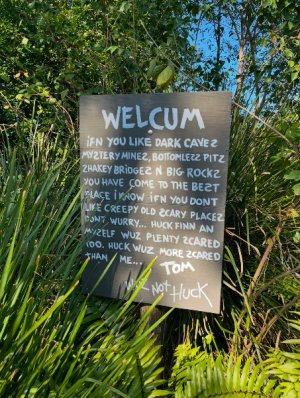 WELCUM
iFN YOU LIKE DARK CAVES
MYSTERY MINES, BOTTOMLESS PITZ
SHAKEY BRIDGES N' BIG ROCKS
YOU HAVE COME TO THE BEST
PLACE I KNOW iFN YOU DON'T
LIKE CREEPY OLD SCARY PLACES
DON'T WURRY... HUCK FINN AN
MYZELF WUZ PLENTY SCARED
TOO. HUCK WUZ MORE SCARED
THAN ME...
TOM
Wuz Not HUCK